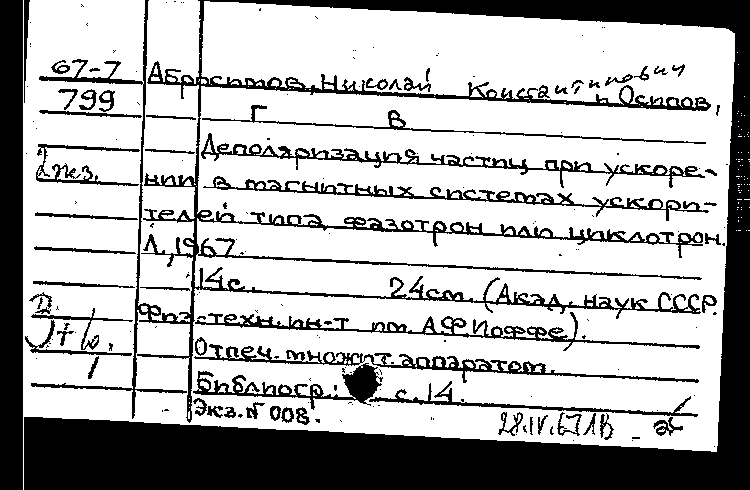 67-7 Абросимов, Николай Константинович и Осипов,
799 Г В
Деполяризация частиц при ускоре-
2 экз. нии в магнитных системах ускори-
телей типа фазотрон или циклотрон.
Л., 1967.
14с. 24см. (Акад. наук СССР.
Физ.-техн. ин-т им. А.Ф.Иоффе).
Отпеч. множит. аппаратом.
Библиогр.: с. 14.
Экз. № 008.
28.IV.67